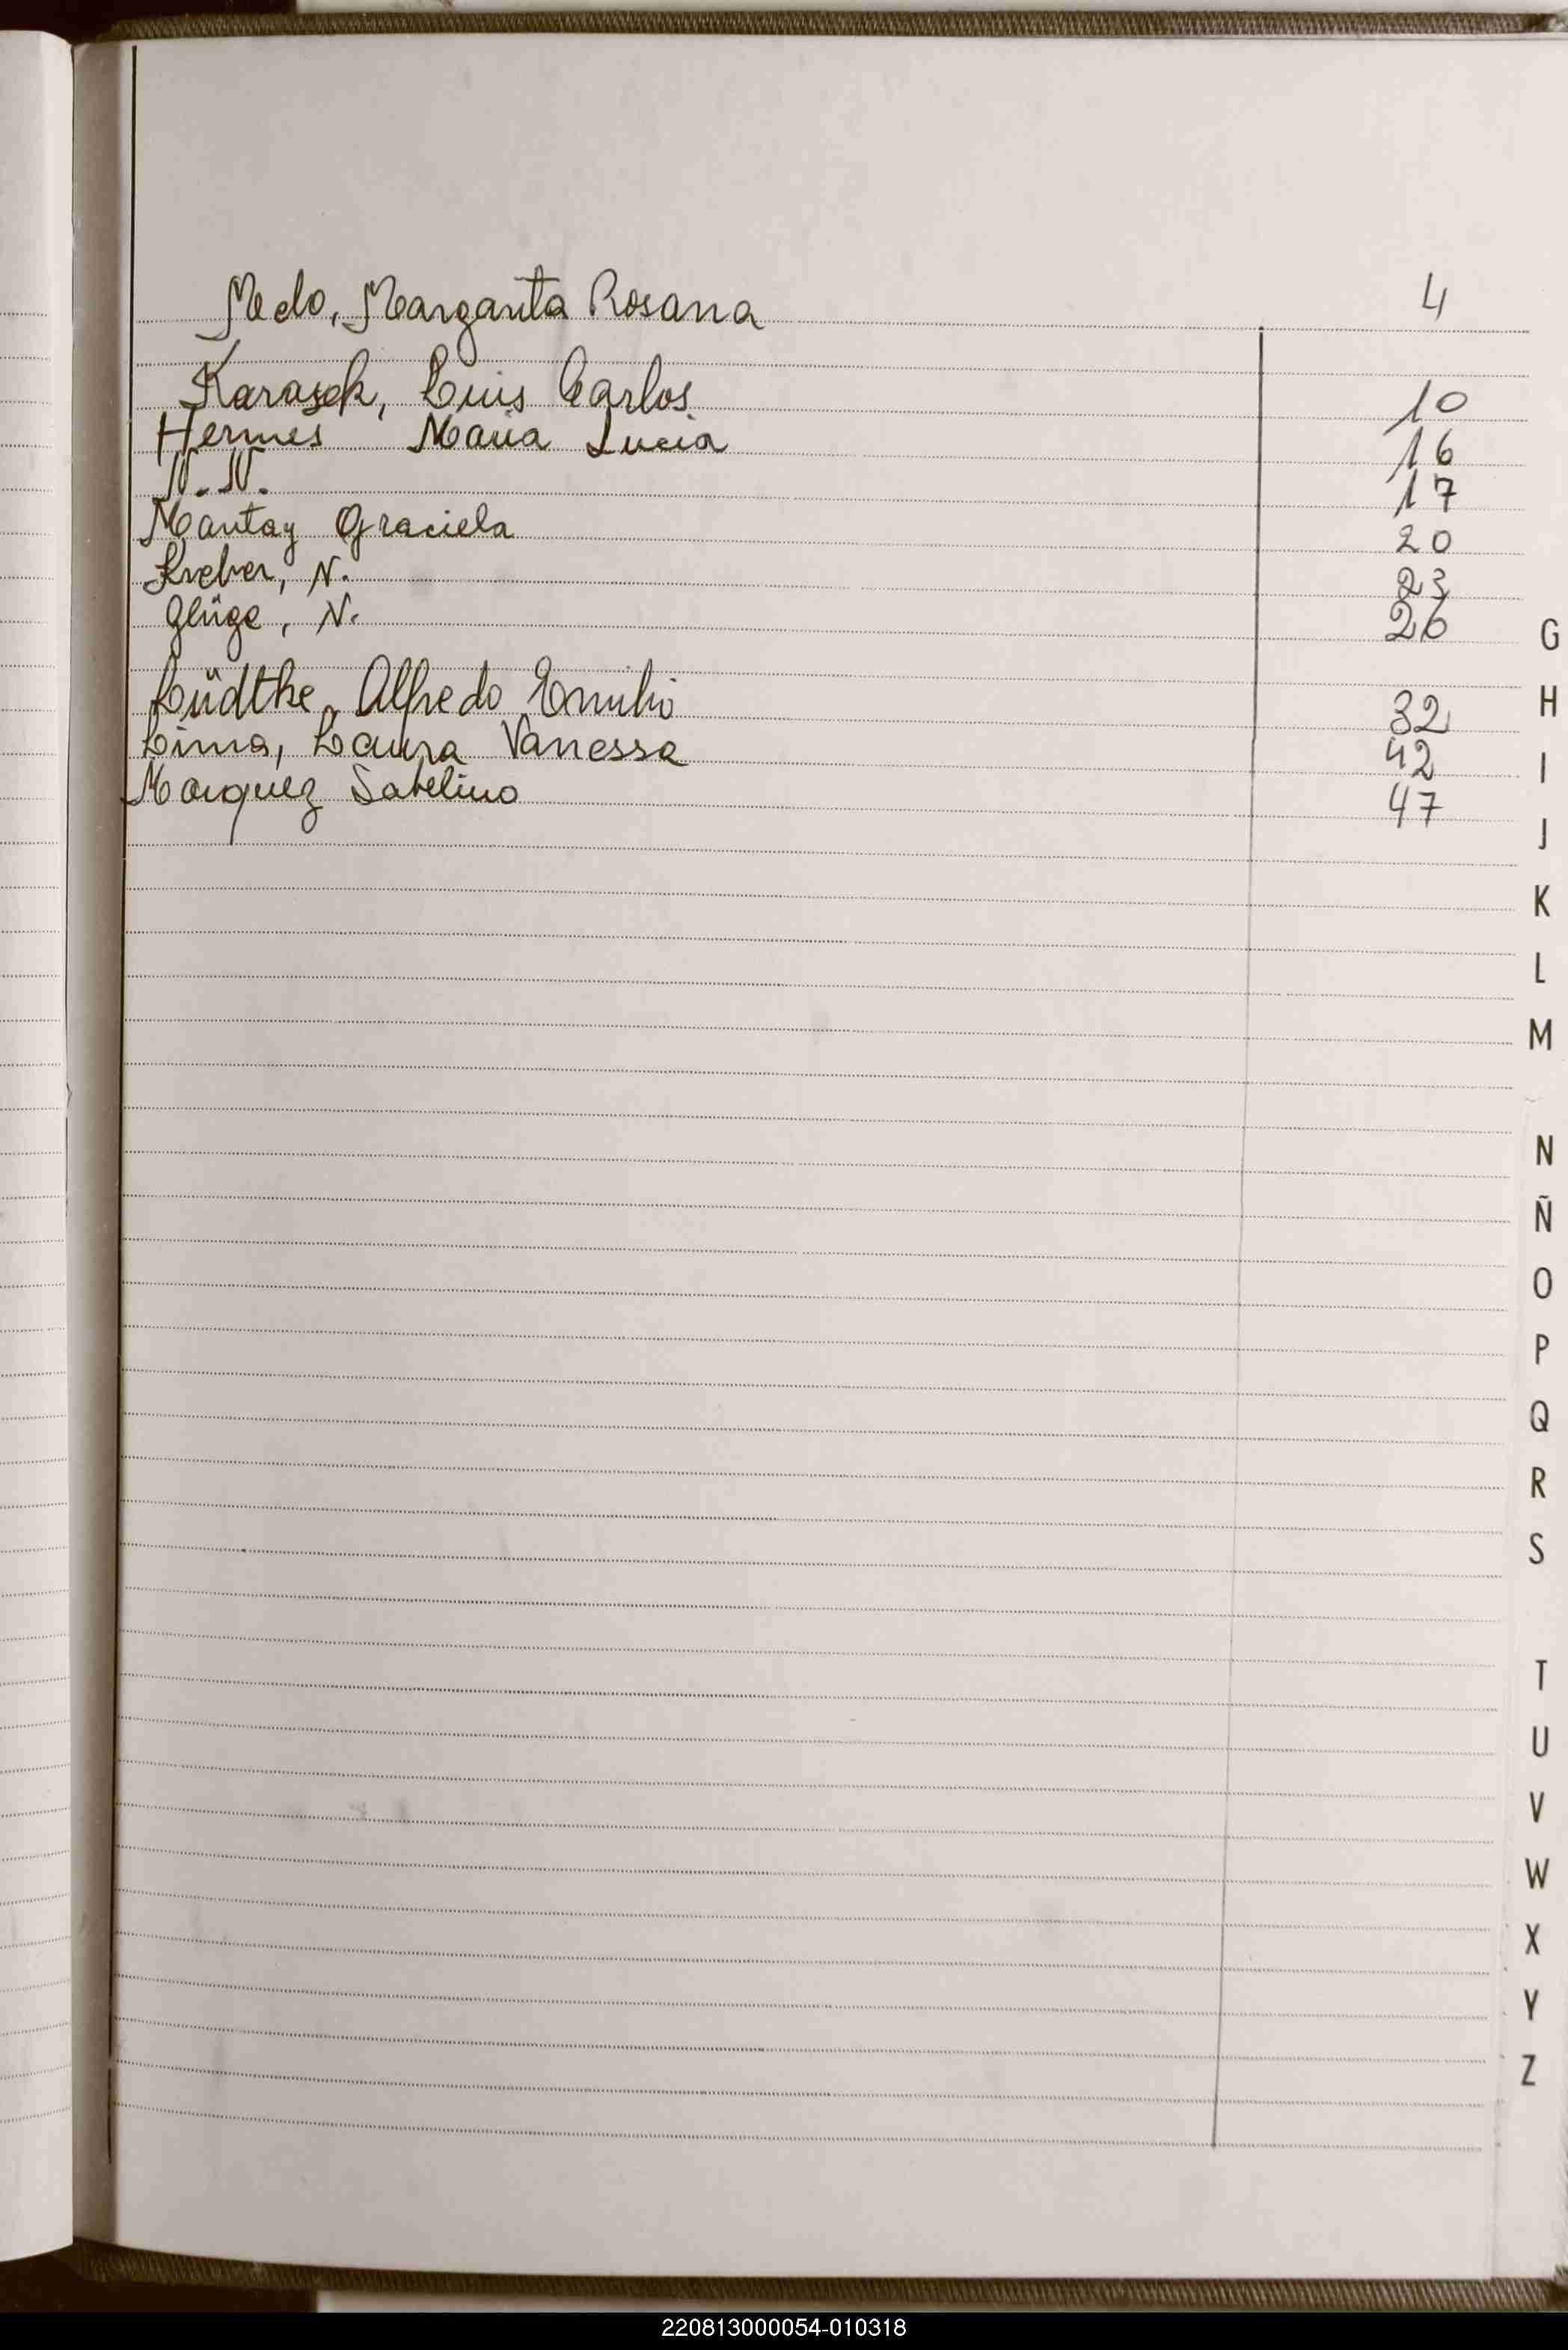 Melo, Margarita Rosana 4
Karasek, Luis Carlos 10
Hermes Maria Lucia 16
N. N. 17
Mantay Graciela 20
Kreber, N. 23
Glüge, N. 26
Lüdtke, Alfredo Emilio 32
Lima, Laura Vanessa 42
Marquez Sabelino 47
G
H
I
J
K
L
M
N
Ñ
O
P
Q
R
S
T
U
V
W
X
Y
Z
220813000054-010318